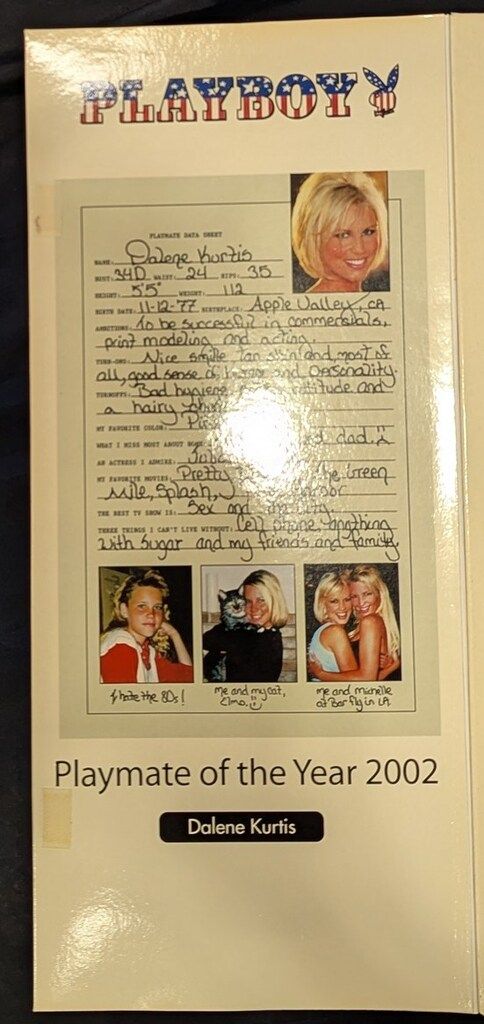 PLAYBOY
PLAYMATE DATA SHEET
NAME: Dalene Kurtis
BUST: 34D WAIST: 24 HIPS: 35
HEIGHT: 5'5" WEIGHT: 112
BIRTH DATE: 11-12-77 BIRTHPLACE: Apple Valley, CA
AMBITIONS: To be successful in commercials,
print modeling and acting.
TURN-ONS: Nice smile, tan skin and, most of
all, good sense of humor and personality.
TURNOFFS: Bad hygiene, attitude and
a hairy
MY FAVORITE COLOR:
WHAT I MISS MOST ABOUT dad.
AN ACTRESS I ADMIRE: Julia
MY FAVORITE MOVIES: Pretty The Green
Mile, Splash,
THE BEST TV SHOW IS: Sex and the City.
THREE THINGS I CAN'T LIVE WITHOUT: Cell phone, anything
with sugar and my friends and family.
I hate the 80s!
me and my cat,
Elmo.
me and Michelle
at Bar fly in LA
Playmate of the Year 2002
Dalene Kurtis